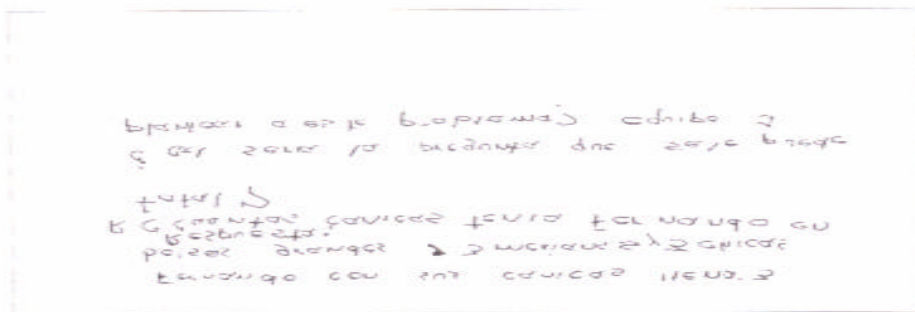 Fernando con sus canicas llena
bolsas grandes medianas chicas
Respuesta:
R= ¿Cuantas canicas tenia fernando en
total?
¿Cual seria la pregunta que se le puede
plantear a este problema? equipo